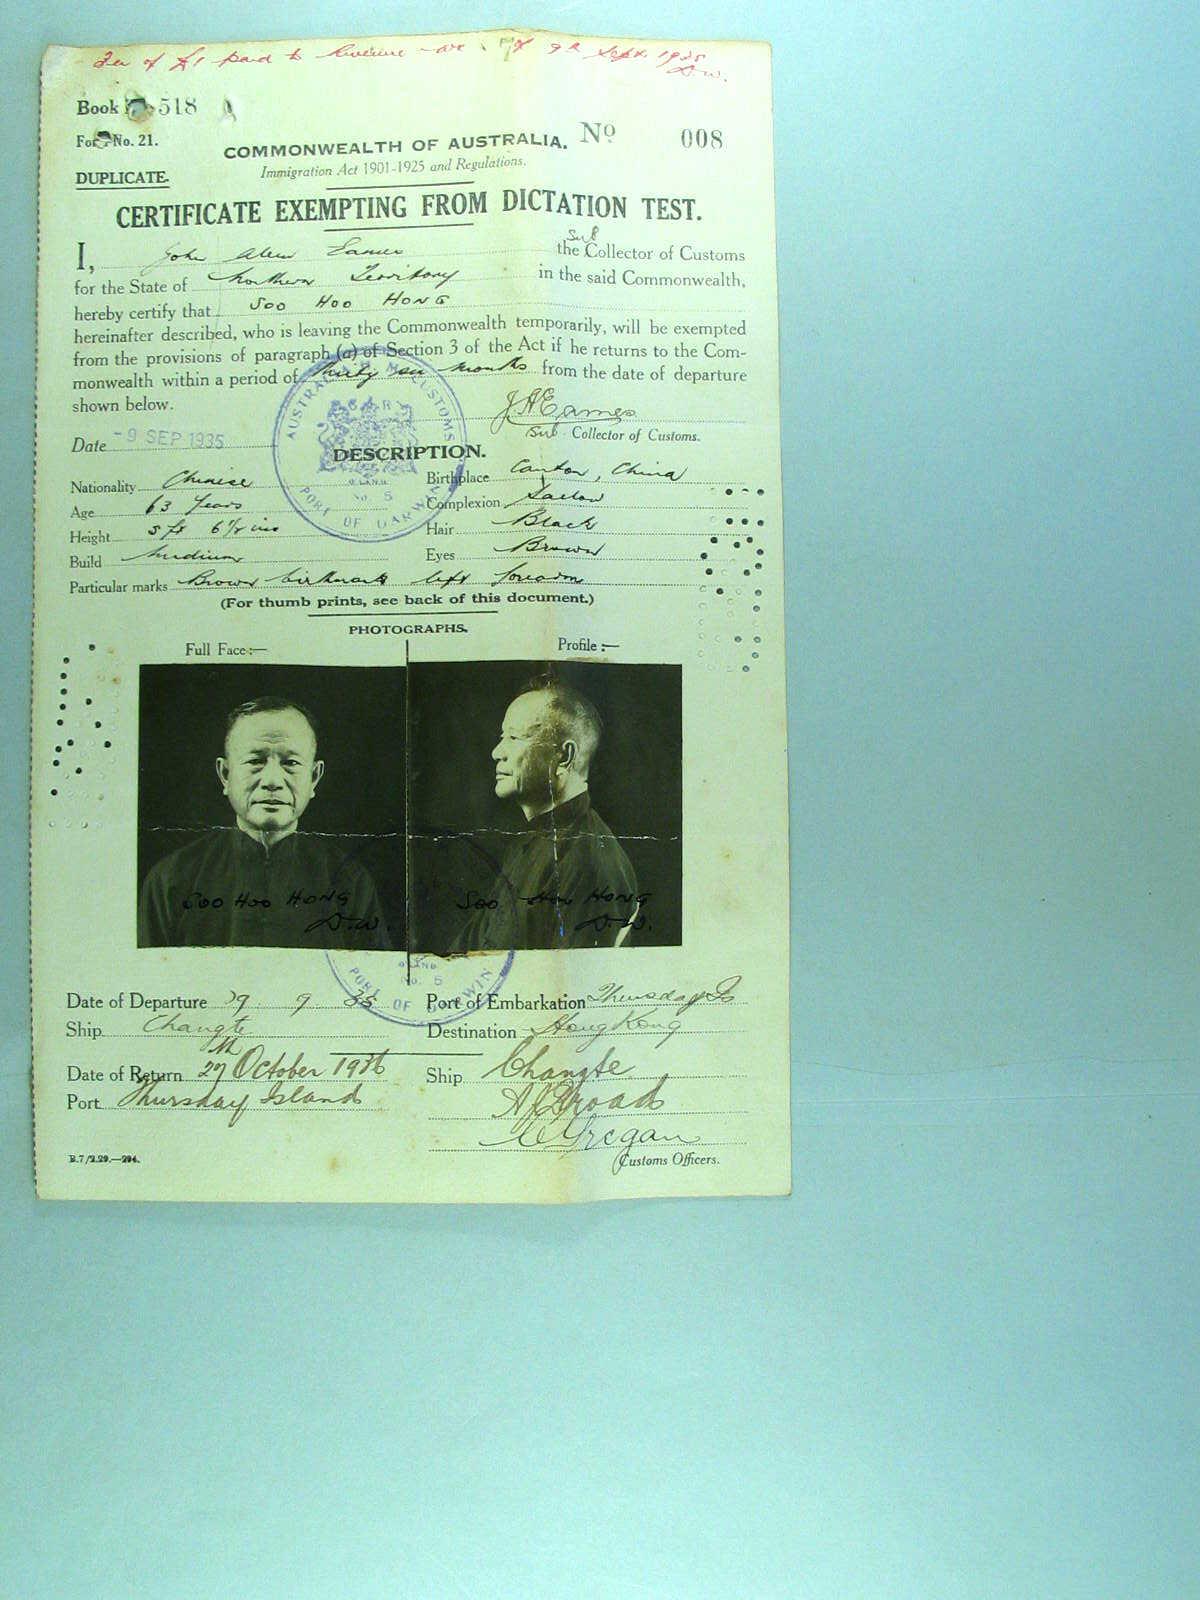 Fee of £1 paid to Revenue of 9th Sept. 1935
D.W.
Book 518
Form No. 21.
COMMONWEALTH OF AUSTRALIA. No 008
Immigration Act 1901-1925 and Regulations.
DUPLICATE.
CERTIFICATE EXEMPTING FROM DICTATION TEST.
I, John Eames the Sub Collector of Customs
for the State of Northern Territory in the said Commonwealth,
hereby certify that Soo Hoo Hong
hereinafter described, who is leaving the Commonwealth temporarily, will be exempted
from the provisions of paragraph (a) of Section 3 of the Act if he returns to the Com-
monwealth within a period of thirty six months from the date of departure
shown below.
J A Eames
Date -9 SEP 1935 Sub Collector of Customs.
AUSTRALIA H.M. CUSTOMS PORT OF DARWIN No. 5
DESCRIPTION.
Nationality Chinese Birthplace Canton, China
Age 63 Years Complexion Sallow
Height 5 ft 6½ ins Hair Black
Build Medium Eyes Brown
Particular marks Brown birthmark left forearm
(For thumb prints, see back of this document.)
PHOTOGRAPHS.
Full Face:— Profile :—
Soo Hoo Hong Soo Hoo Hong
D.W. D.W.
No. 5
PORT OF DARWIN
Date of Departure 29 9 35 Port of Embarkation Thursday Is
Ship Changte Destination Hong Kong
Date of Return 27th October 1936 Ship Changte
Port Thursday Island A J Broad
C Gregan
B.7/2.29.—294. Customs Officers.